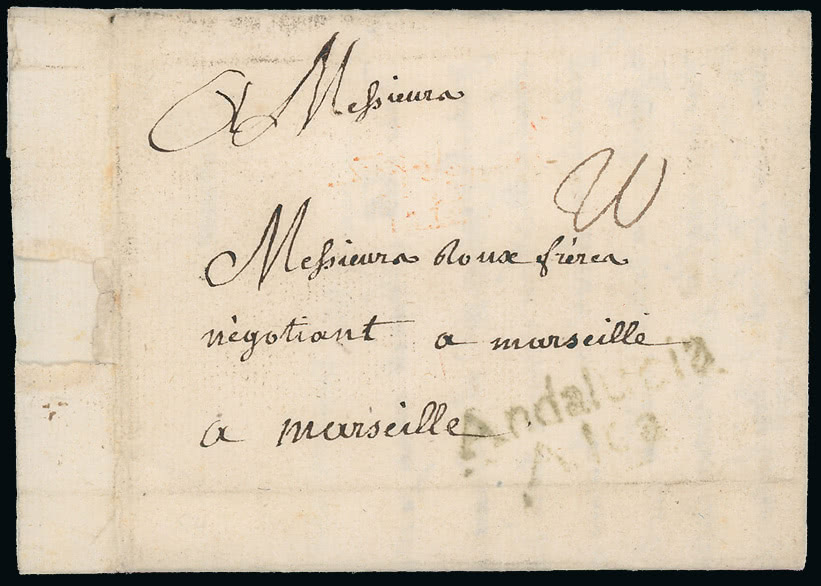 A Messieurs
Messieurs Roux freres
nègotiant a marseille
a marseille
Andalucia